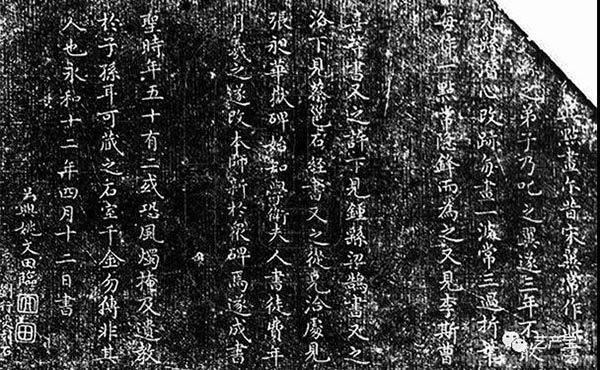 點畫尒昔宋翼常作此書
之弟子乃叱之翼遂三年不敢
見繇潛心改跡每畫一波常三過折筆
每作一點常隱鋒而為之又見李斯曹
喜等書又之許下見鍾繇梁鵠書又之
洛下見蔡邕石經書又之從兄洽處見
張昶華嶽碑始知學衛夫人書徒費年
月羲之遂改本師新於眾碑焉遂成書
聖時年五十有二或恐風燭掩及遺教
於子孫耳可藏之石室千金勿傳非其
人也永和十二年四月十二日書
吳興姚文田臨